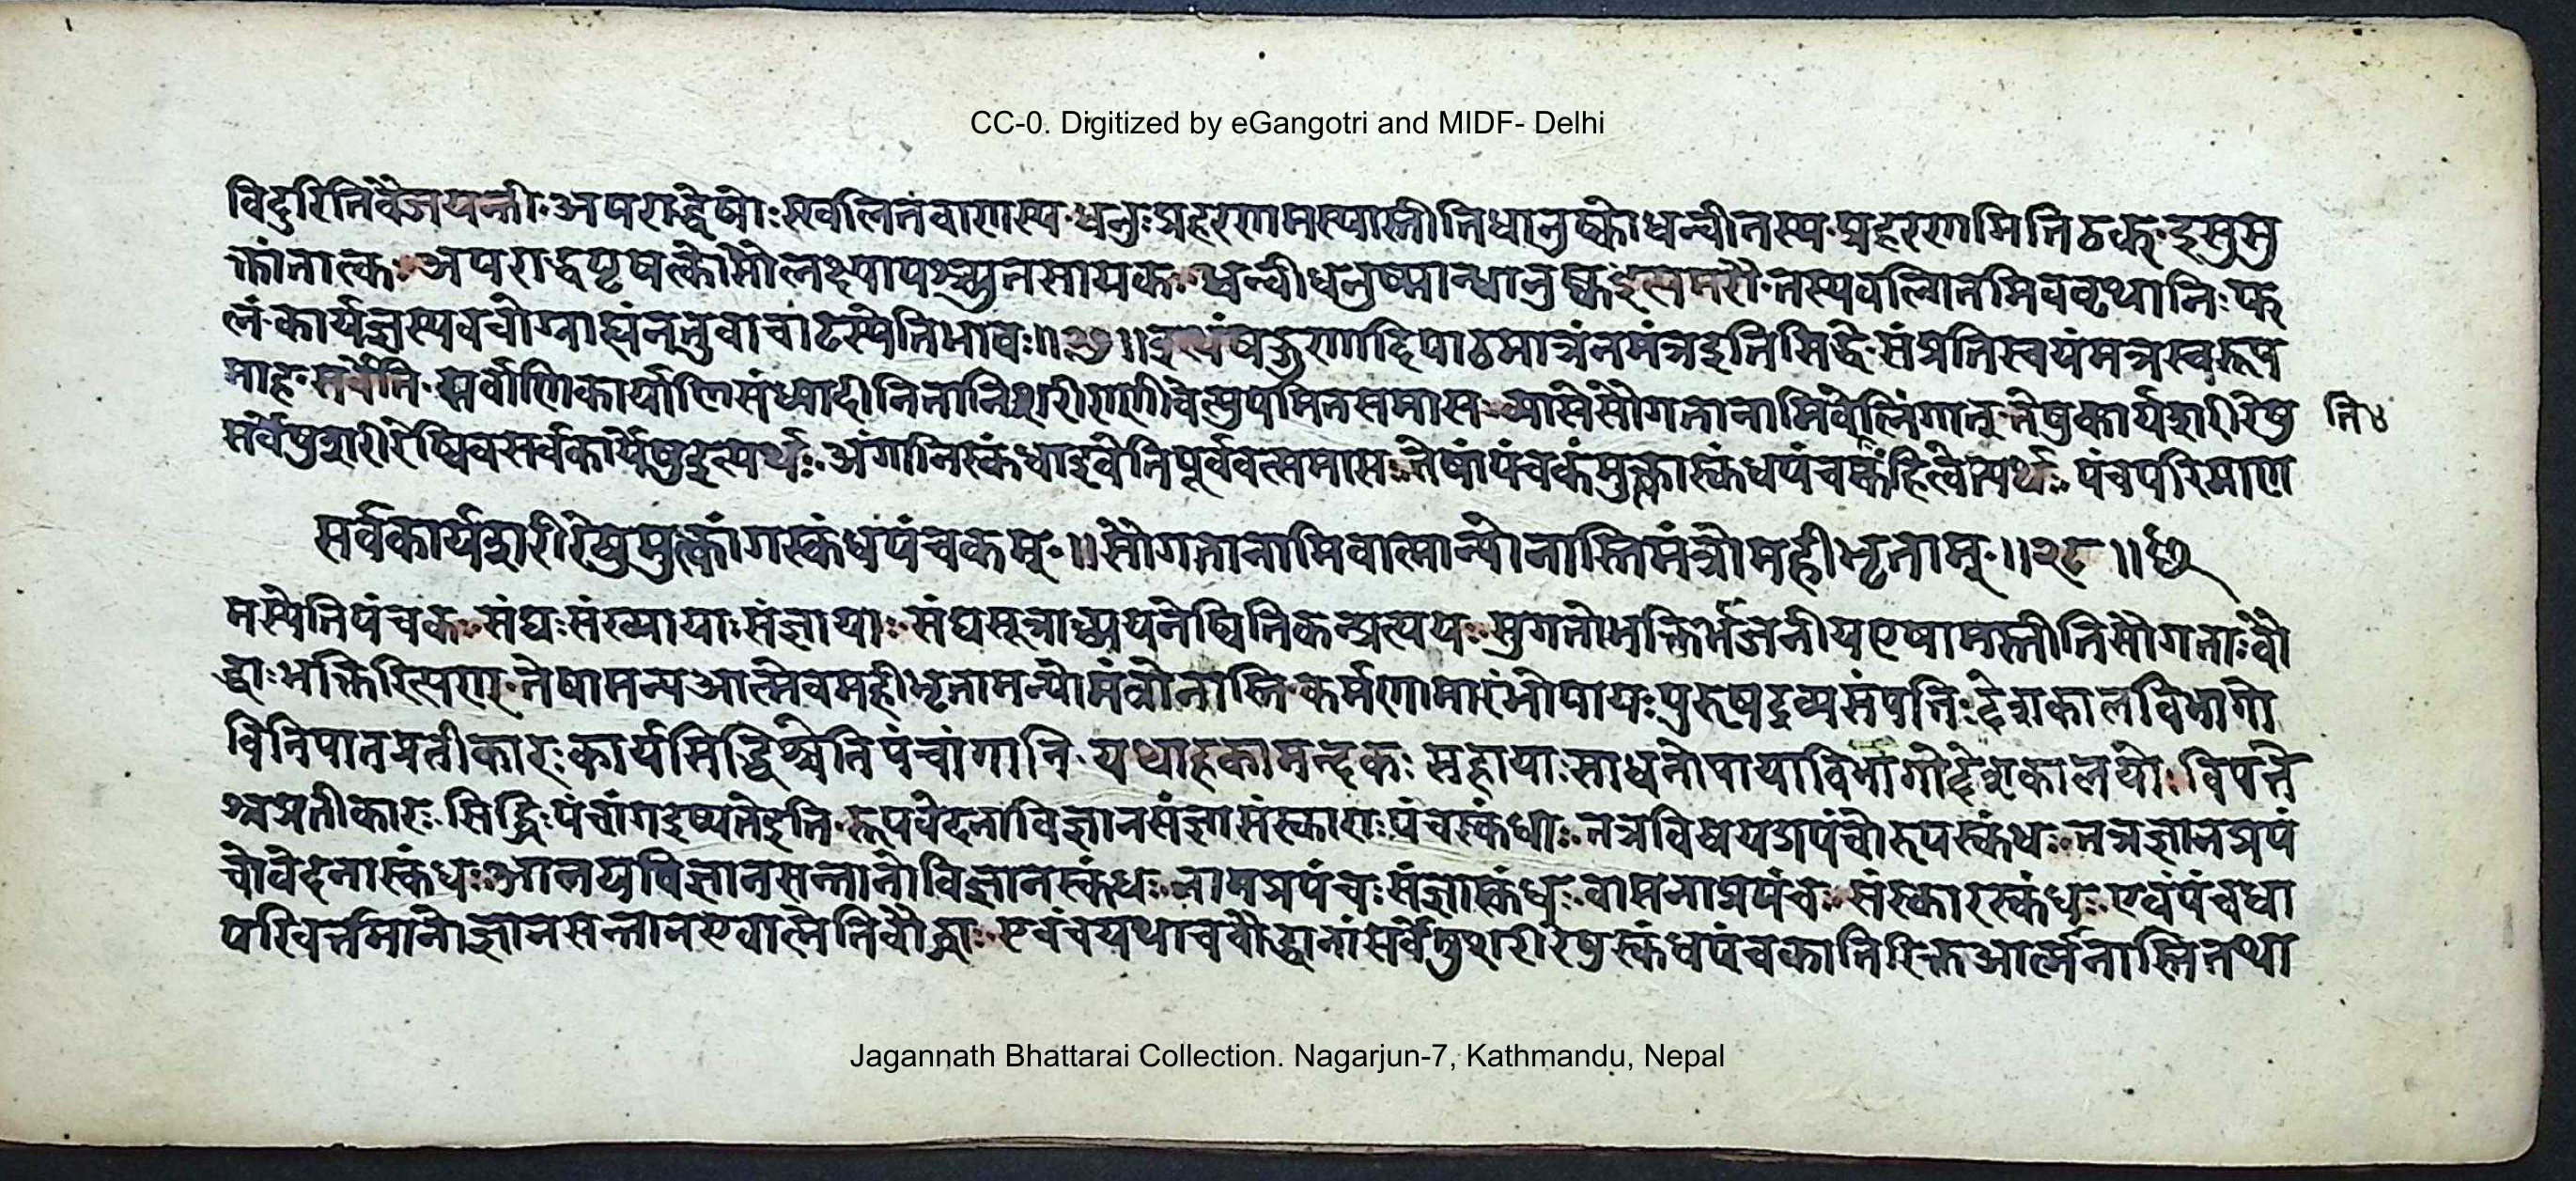 CC-0. Digitized by eGangotri and MIDF- Delhi
विदुरितिवैजयन्ती अपराद्धेषोः स्खलितबाणस्य धनुः प्रहरणमस्यास्तीतिधानुष्कोधन्वीतस्य प्रहरणमितिठक् इसुसु
क्तांतात्क अपराद्धपृषत्कोसौलक्ष्याद्यश्च्युतसायक धन्वीधनुष्मान्धानुष्कइत्यमरौ तस्यवल्गितमिववृथानिःफ
लं कार्यज्ञस्यवचोग्राह्यंनतुवाचाटस्येतिभावः ॥२७॥ इत्थंषड्गुणादिपाठमात्रंनमंत्रइतिसिद्धे संप्रतिस्वयंमन्त्रस्वरूप
माह सर्वेति सर्वाणिकार्याणिसंध्यादीनितानिशरीराणीवेत्युपमितसमास सौगतानामिवेतिलिंगात् तेषुकार्यशरीरेषु
ति४
सर्वेषुशरीरेष्विवसर्वकार्येषुइत्यर्थः अंगानिस्कंधाइवेतिपूर्ववत्समास तेषांपंचकंमुक्त्वास्कंधपंचकंहित्वेत्यर्थः पंचपरिमाण
सर्वकार्यशरीरेषुमुक्त्वांगस्कंधपंचकम् ॥ सौगतानामिवात्मान्योनास्तिमंत्रोमहीभृताम् ॥२८॥
मस्येतिपंचक संघः संख्याया संज्ञाया संघसूत्राध्ययनेष्वितिकन्प्रत्ययः सुगतोभक्तिर्भजनीयएषामस्तीतिसौगताः बौ
द्धाः भक्तिरित्यण् तेषामन्यआत्मेवमहीभृतामन्योमंत्रोनास्ति कर्मणामारंभोपायः पुरुषद्रव्यसंपत्तिः देशकालविभागो
विनिपातप्रतीकारः कार्यसिद्धिश्चेतिपंचांगानि यथाहकामन्दकः सहायाः साधनोपायाविभागोदेशकालयोः विपत्ते
श्चप्रतीकारः सिद्धिः पंचांगइष्यतेइति रूपवेदनाविज्ञानसंज्ञासंस्काराः पंचस्कंधाः तत्रविषयप्रपंचोरूपस्कंधः तत्रज्ञानप्रपं
चोवेदनास्कंधः आलयविज्ञानसन्तानोविज्ञानस्कंधः नामप्रपंचः संज्ञास्कंधः वासनाप्रपंच संस्कारस्कंधः एवंपंचधा
परिवर्त्तमानोज्ञानसन्तानएवात्मेतिबौद्धाः एवंचयथाचबौद्धानांसर्वेषुशरीरेषुस्कंधपंचकातिरिक्तआत्मानास्तितथा
Jagannath Bhattarai Collection. Nagarjun-7, Kathmandu, Nepal